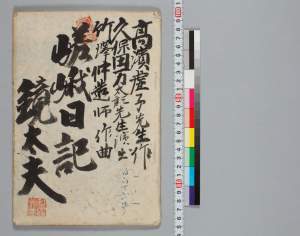 高濱虚子先生作
久保田万太郎先生演出
竹澤仲造師作曲
嵯峨日記
鏡太夫